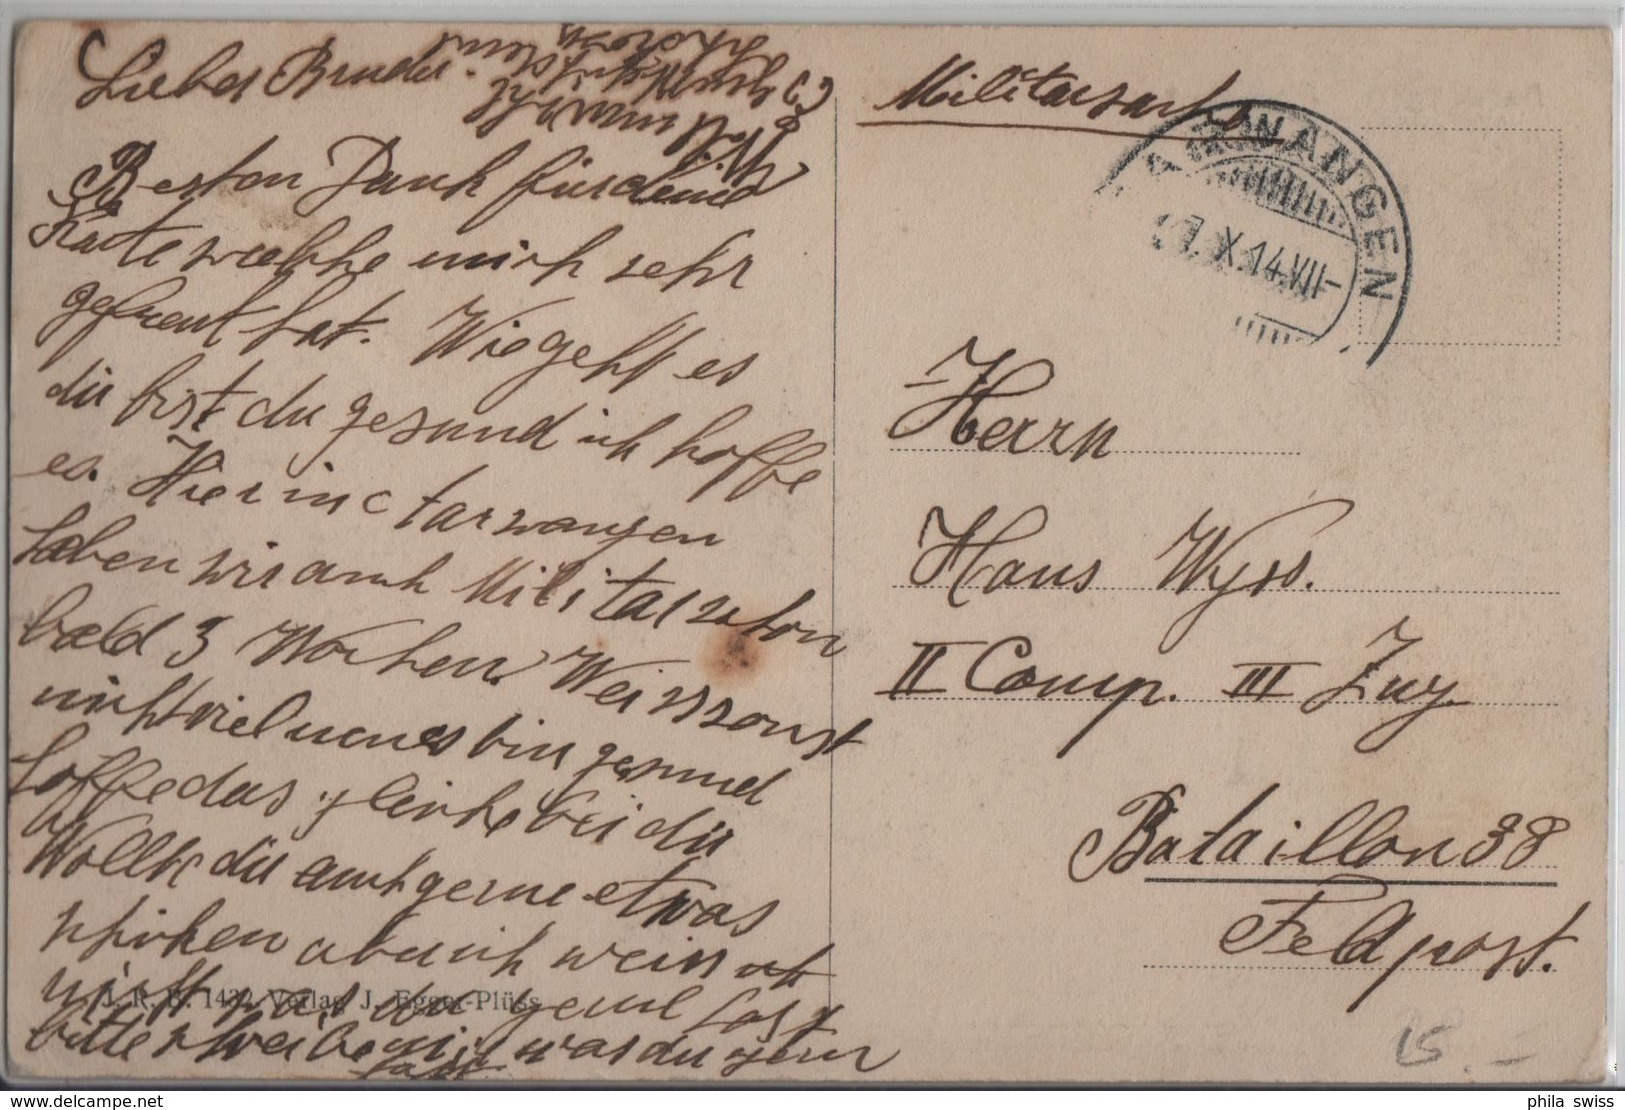 Lieber Bruder.
Besten Dank für deine
Karte welche mich sehr
gefreut hat. Wie geht es
dir bist du gesund ich hoffe
es. Hier in Aarwangen
haben wir auch Militär schon
bald 3 Wochen. Weis sonst
nicht viel neues bin gesund
hoffe das gleiche bei dir
Wollte dir auch gerne etwas
schicken aber ich weiss
nicht was du gerne hast
bitte schreibe mir was du gern
hast
Militärsache
WANGEN
7. X. 14. VII-
Herrn
Hans Wyss.
II Comp. III Zug.
Bataillon 38
Feldpost.
J. R. B. 1432 Verlag J. Egger-Plüss
15.-
phila swiss